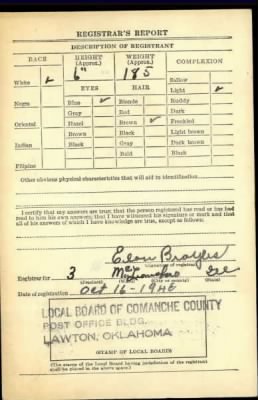 REGISTRAR'S REPORT
DESCRIPTION OF REGISTRANT
RACE HEIGHT (Approx.) WEIGHT (Approx.) COMPLEXION
White ✓ 6" 185 Sallow
EYES HAIR Light ✓
Negro Blue ✓ Blonde Ruddy
Gray Red Dark
Oriental Hazel Brown ✓ Freckled
Brown Black Light brown
Indian Black Gray Dark brown
Bald Black
Filipino
Other obvious physical characteristics that will aid in identification
I certify that my answers are true; that the person registered has read or has had
read to him his own answers; that I have witnessed his signature or mark and that
all of his answers of which I have knowledge are true, except as follows:
Registrar for 3
(City or county) (State)
Date of registration Oct 16-1940
LOCAL BOARD OF COMANCHE COUNTY
POST OFFICE BLDG.
LAWTON, OKLAHOMA
(STAMP OF LOCAL BOARD)
(The stamp of the Local Board having jurisdiction of the registrant
shall be placed in the above space)